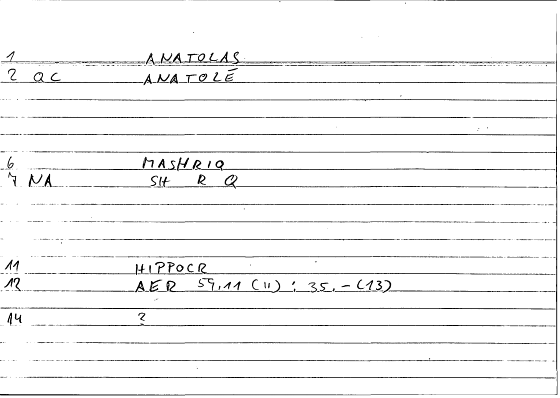 1 ANATOLAS
2 QC ANATOLÉ
6 MASHRIQ
7 NA SH R Q
11 HIPPOCR
12 AER 59,11 (11) : 35.-(13)
14 ?